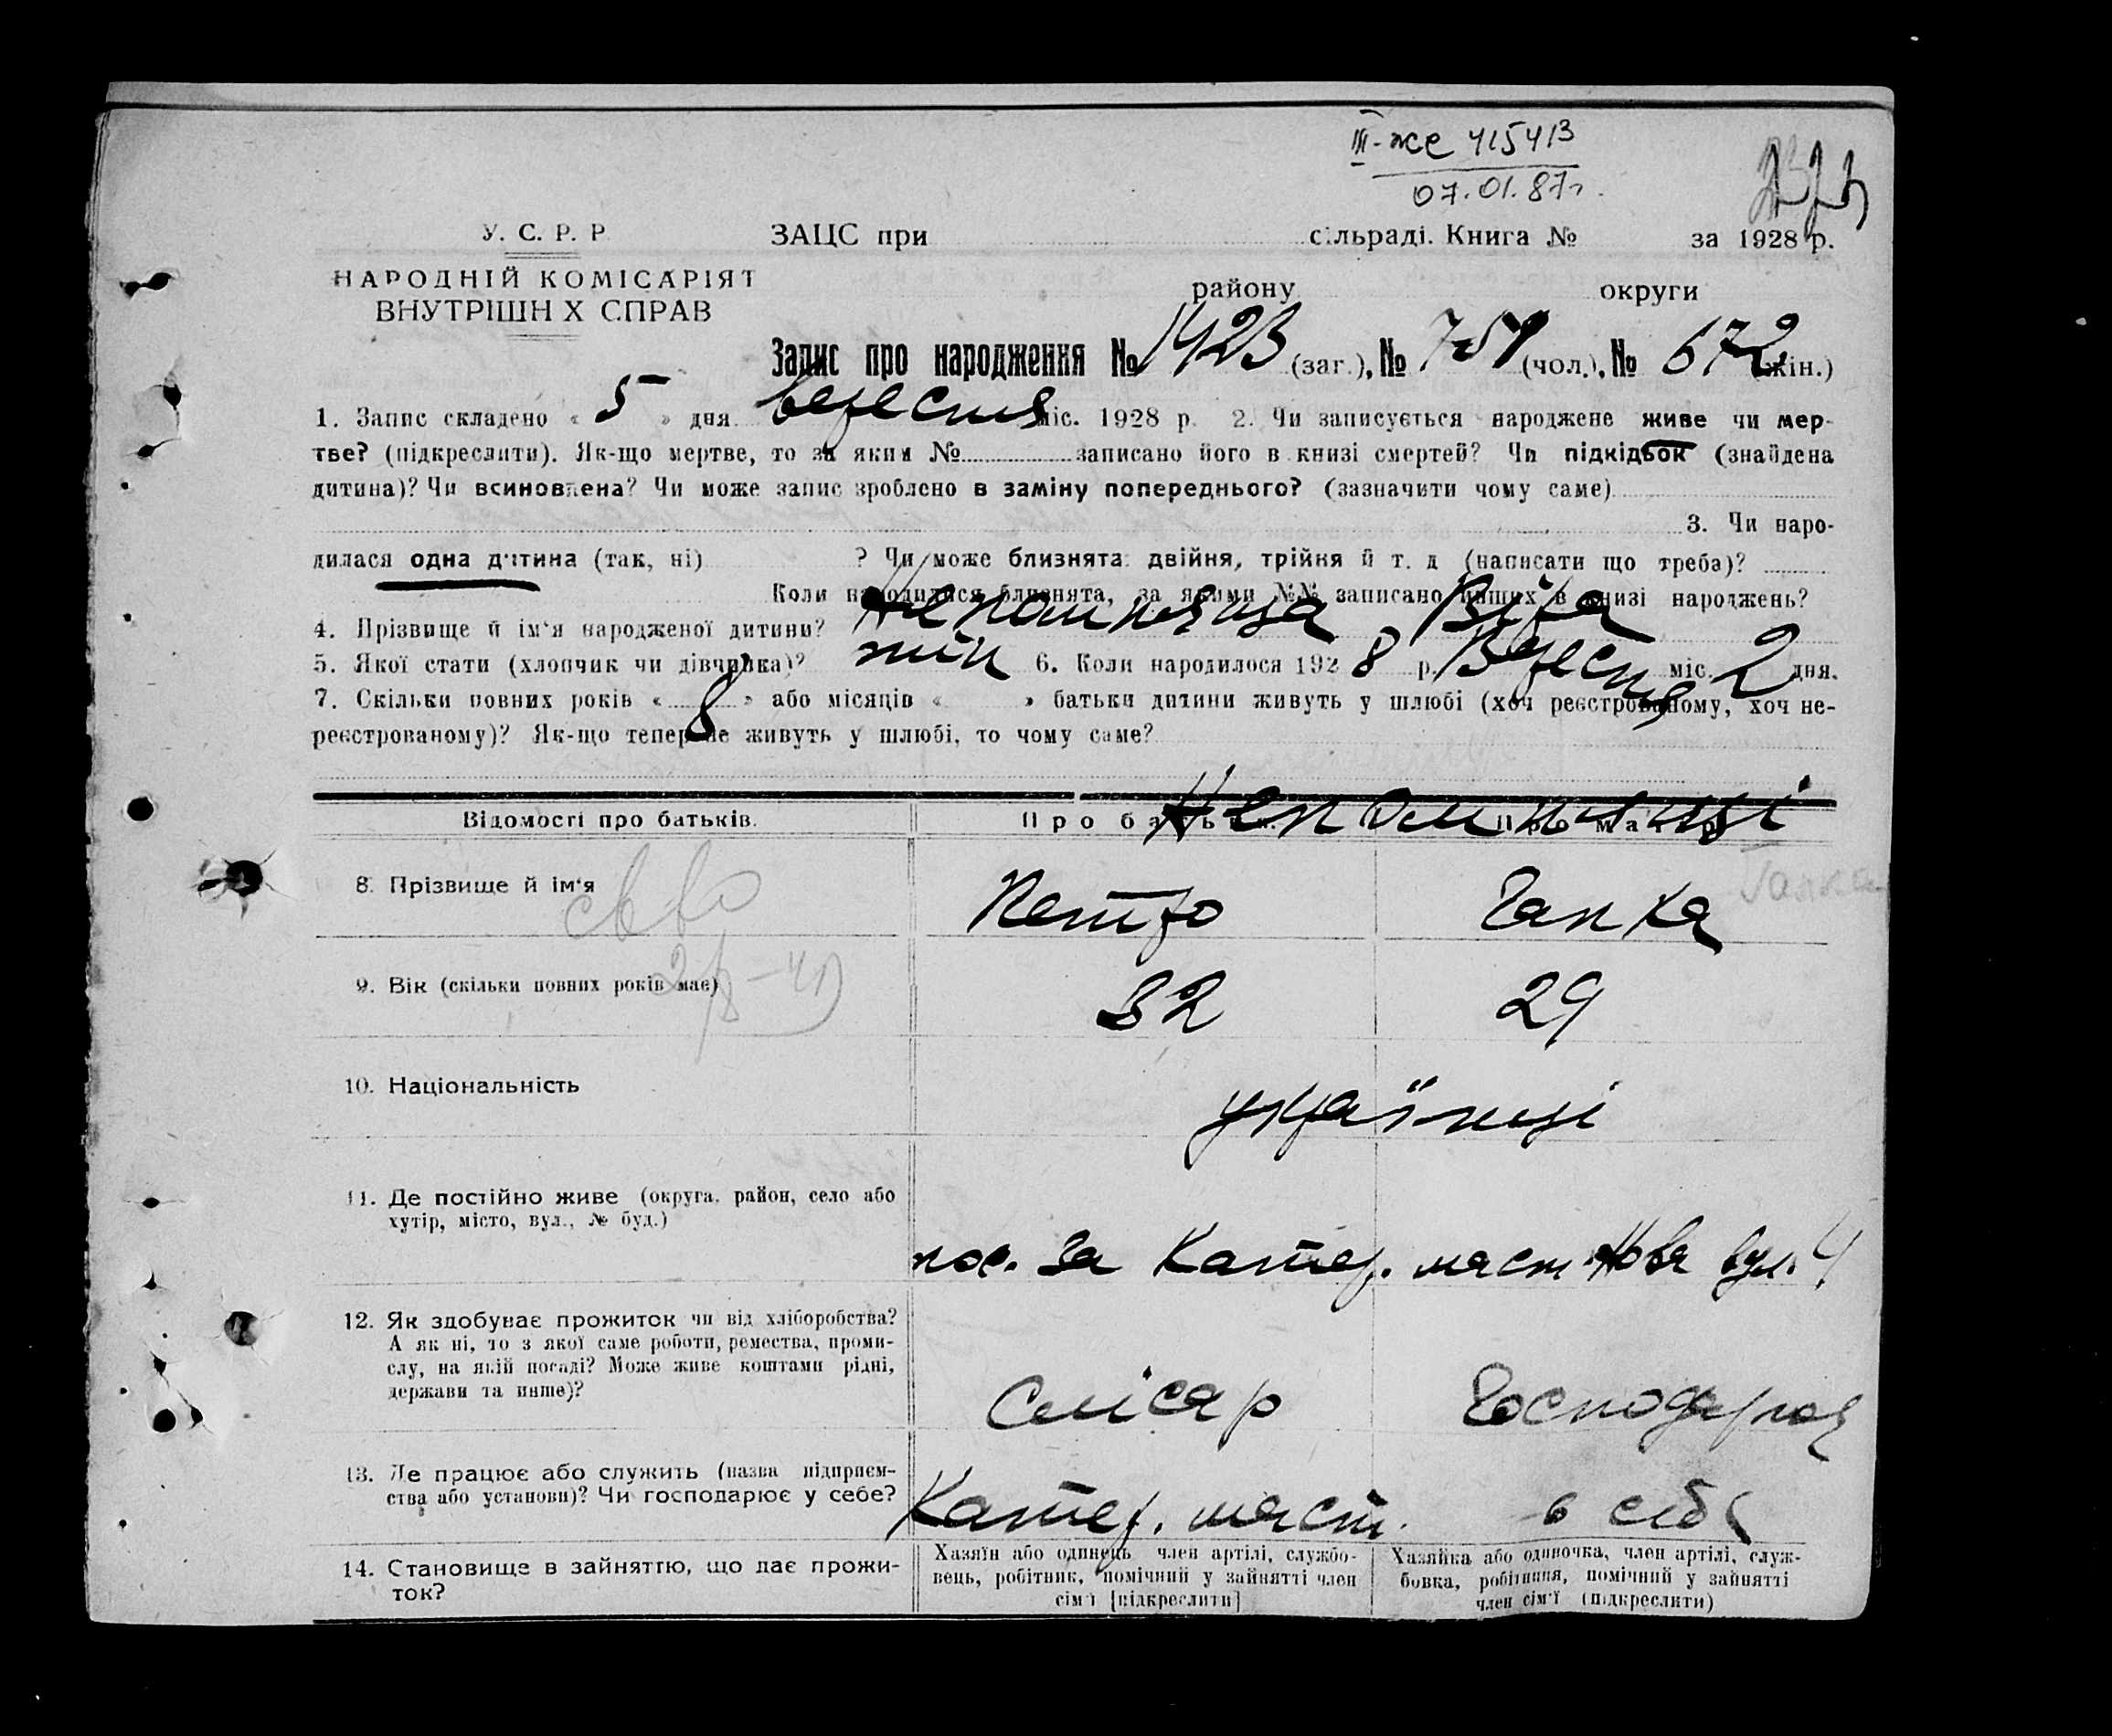 III-же 415413
07.01.87г.
У. С. Р. Р ЗАЦС при сільраді. Книга № за 1928 р.
НАРОДНІЙ КОМІСАРІЯТ
ВНУТРІШН Х СПРАВ
району округи
Запис про народження № 1423 (заг.), № 751 (чол.), № 672 (жін.)
1. Запис складено « 5 » дня вересня міс. 1928 р. 2. Чи записується народжене живе чи мер-
тве? (підкреслити). Як-що мертве, то за яким № записано його в книзі смертей? Чи підкідьок (знайдена
дитина)? Чи всиновлена? Чи може запис зроблено в заміну попереднього? (зазначити чому саме)
3. Чи наро-
дилася одна дитина (так, ні) ? Чи може близнята: двійня, трійня й т. д (написати що треба)?
Коли народилися близнята, за якими №№ записано инших в книзі народжень?
4. Прізвище й ім'я народженої дитини? Непомняща Віра
5. Якої стати (хлопчик чи дівчинка)? жін 6. Коли народилося 1928 р. Вересня міс. 2 дня.
7. Скільки повних років « 8 » або місяців « » батьки дитини живуть у шлюбі (хоч реєстрованому, хоч не-
реєстрованому)? Як-що тепер не живуть у шлюбі, то чому саме?
Відомості про батьків. Про батька. Про матір
Непомнящі
8. Прізвище й ім'я Петро Гапка
Гапка
9. Вік (скільки повних років має) 32 29
10. Національність українці
11. Де постійно живе (округа, район, село або
хутір, місто, вул., № буд.)
пос. за Катер. маст. Нова вул. 4
12. Як здобуває прожиток чи від хліборобства?
А як ні, то з якої саме роботи, ремества, проми-
слу, на якій посаді? Може живе коштами рідні,
держави та инше)?
Слісар Господарює
13. Де працює або служить (назва підприєм-
ства або установи)? Чи господарює у себе?
Катер. маст. в себе
14. Становище в зайняттю, що дає прожи-
ток?
Хазяїн або одинець, член артілі, службо-
вець, робітник, помічний у зайнятті член
сім'ї [підкреслити]
Хазяйка або одиночка, член артілі, служ-
бовка, робітниця, помічний у зайнятті
член сім'ї (підкреслити)